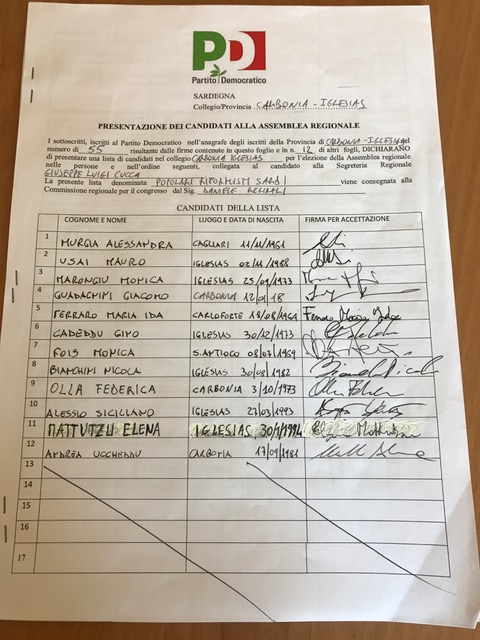 PD
Partito Democratico
SARDEGNA
Collegio/Provincia CARBONIA - IGLESIAS
PRESENTAZIONE DEI CANDIDATI ALLA ASSEMBLEA REGIONALE
I sottoscritti, iscritti al Partito Democratico nell'anagrafe degli iscritti della Provincia di CARBONIA-IGLESIAS del
numero di 55 risultante dalle firme contenute in questo foglio e in n. 12 di altri fogli, DICHIARANO
di presentare una lista di candidati nel collegio CARBONIA IGLESIAS per l'elezione della Assemblea regionale
nelle persone e nell'ordine seguenti, collegata al candidato alla Segreteria Regionale
GIUSEPPE LUIGI CUCCA
La presente lista denominata POPOLARI RIFORMISTI SARDI viene consegnata alla
Commissione regionale per il congresso dal Sig. DANIELE
CANDIDATI DELLA LISTA
COGNOME E NOME LUOGO E DATA DI NASCITA FIRMA PER ACCETTAZIONE
1 MURGIA ALESSANDRA CAGLIARI 11/11/1961
2 USAI MAURO IGLESIAS 02/11/1988
3 MARONGIU MONICA IGLESIAS 25/09/1973
4 GUADAGNINI GIACOMO CARBONIA 12/01/18
5 FERRARO MARIA IDA CARLOFORTE 18/08/1964 Ferraro Maria Ida
6 CADEDDU GINO IGLESIAS 30/12/1973
7 FOIS MONICA S.ANTIOCO 08/07/1969
8 BIANCHINI NICOLA IGLESIAS 30/08/1982
9 OLLA FEDERICA CARBONIA 3/10/1973
10 ALESSIO SICILIANO IGLESIAS 27/03/1993
11 MATTUTZU ELENA IGLESIAS 30/1/1994
12 ANDREA UCCHEDDU CARBONIA 17/09/1981
13
14
15
16
17